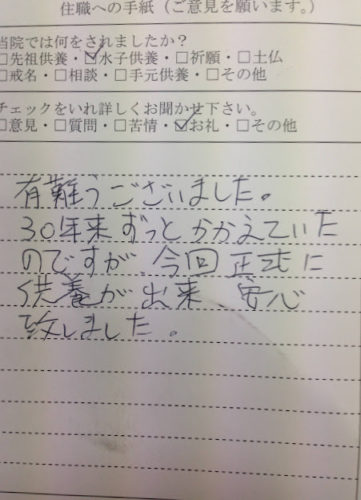 住職への手紙（ご意見を願います。）
当院では何をされましたか？
□先祖供養・☑水子供養・□祈願・□土仏
□戒名・□相談・□手元供養・□その他
チェックをいれ詳しくお聞かせ下さい。
□意見・□質問・□苦情・☑お礼・□その他
有難うございました。
30年来ずっとかかえていた
のですが、今回正式に
供養が出来、安心
致しました。